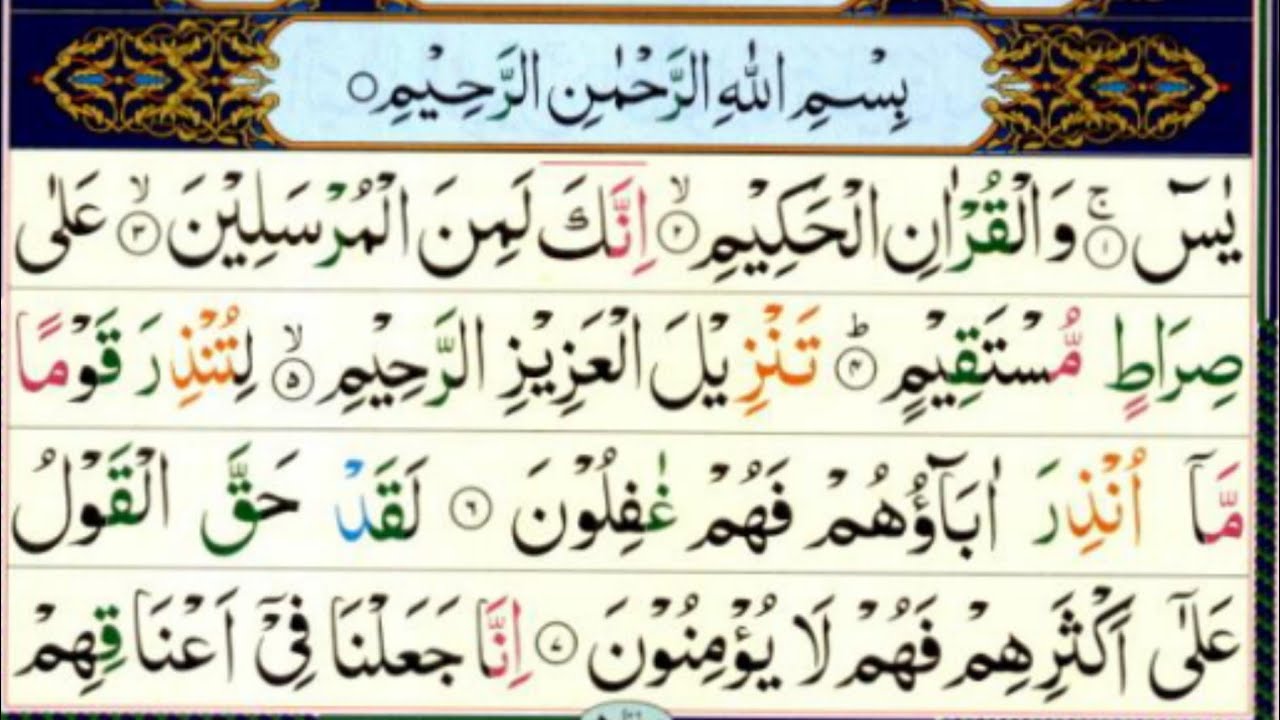 بِسْمِ اللّٰهِ الرَّحْمٰنِ الرَّحِيْمِ○
يٰسٓ ۚ﴿۱﴾ وَالْقُرْاٰنِ الْحَكِيْمِ ۙ﴿۲﴾ اِنَّكَ لَمِنَ الْمُرْسَلِيْنَ ۙ﴿۳﴾ عَلٰى
صِرَاطٍ مُّسْتَقِيْمٍ ؕ﴿۴﴾ تَنْزِيْلَ الْعَزِيْزِ الرَّحِيْمِ ۙ﴿۵﴾ لِتُنْذِرَ قَوْمًا
مَّاۤ اُنْذِرَ اٰبَآؤُهُمْ فَهُمْ غٰفِلُوْنَ ﴿۶﴾ لَقَدْ حَقَّ الْقَوْلُ
عَلٰۤى اَكْثَرِهِمْ فَهُمْ لَا يُؤْمِنُوْنَ ﴿۷﴾ اِنَّا جَعَلْنَا فِىْۤ اَعْنَاقِهِمْ